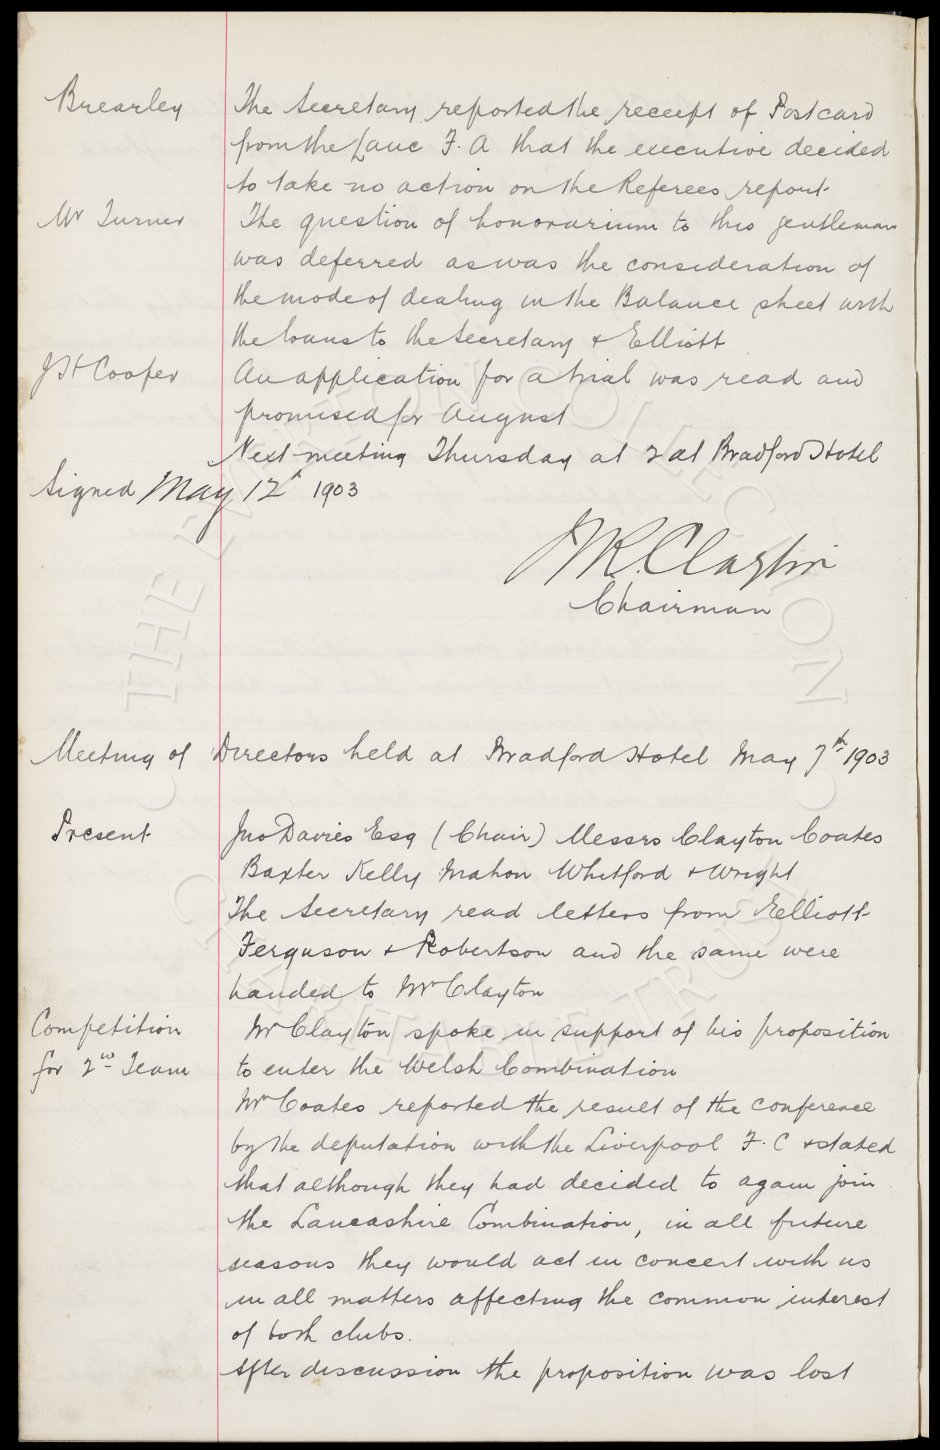 Brearley The Secretary reported the receipt of Postcard
from the Lanc F. A that the executive decided
to take no action on the Referees report
Mr Turner The question of honorarium to this gentleman
was deferred as was the consideration of
the mode of dealing in the Balance sheet with
the loans to the Secretary & Elliott
J H Cooper An application for a trial was read and
promised for August
Next meeting Thursday at 2 at Bradford Hotel
Signed May 12th 1903
J R. Clayton
Chairman
Meeting of Directors held at Bradford Hotel May 7th 1903
Present Jno Davies Esq (Chair) Messrs Clayton Coates
Baxter Kelly Mahon Whitford & Wright
The Secretary read letters from Elliott
Ferguson & Robertson and the same were
handed to Mr Clayton
Competition Mr Clayton spoke in support of his proposition
for 2nd Team to enter the Welsh Combination
Mr Coates reported the result of the conference
by the deputation with the Liverpool F. C & stated
that although they had decided to again join
the Lancashire Combination, in all future
seasons they would act in concert with us
in all matters affecting the common interest
of both clubs.
After discussion the proposition was lost
© THE EVERTON COLLECTION
CHARITABLE TRUST